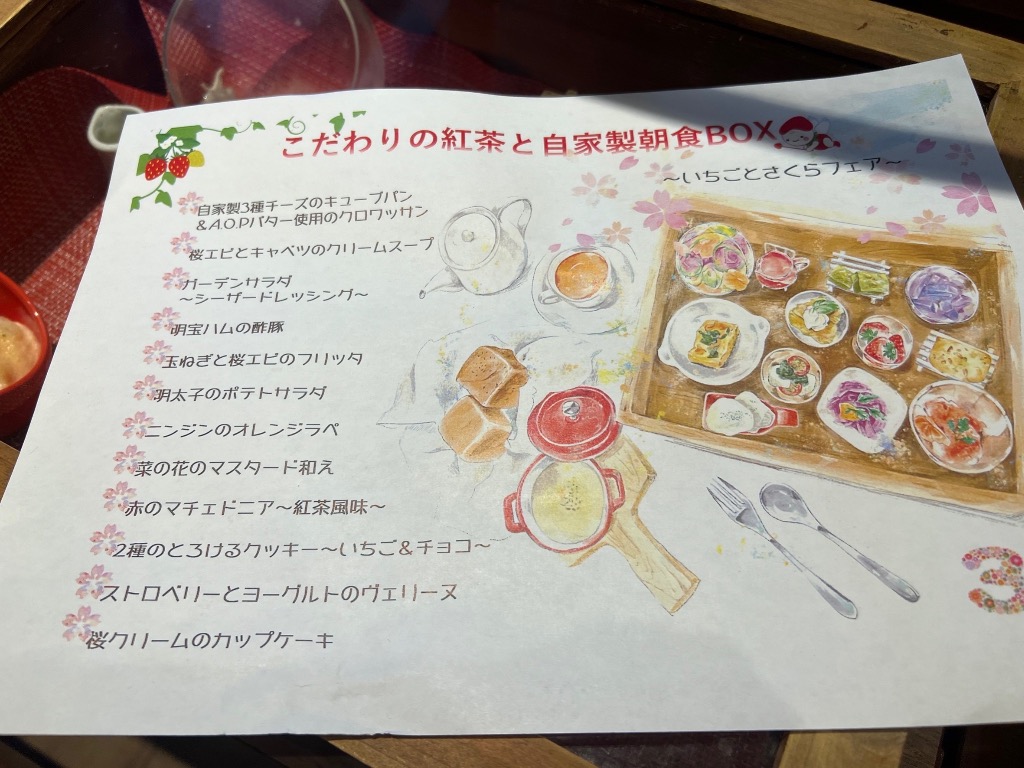 こだわりの紅茶と自家製朝食BOX
～いちごとさくらフェア～
自家製3種チーズのキューブパン
&A.O.Pバター使用のクロワッサン
桜エビとキャベツのクリームスープ
ガーデンサラダ
～シーザードレッシング～
明宝ハムの酢豚
玉ねぎと桜エビのフリッタ
明太子のポテトサラダ
ニンジンのオレンジラペ
菜の花のマスタード和え
赤のマチェドニア～紅茶風味～
2種のとろけるクッキー～いちご&チョコ～
ストロベリーとヨーグルトのヴェリーヌ
桜クリームのカップケーキ
3